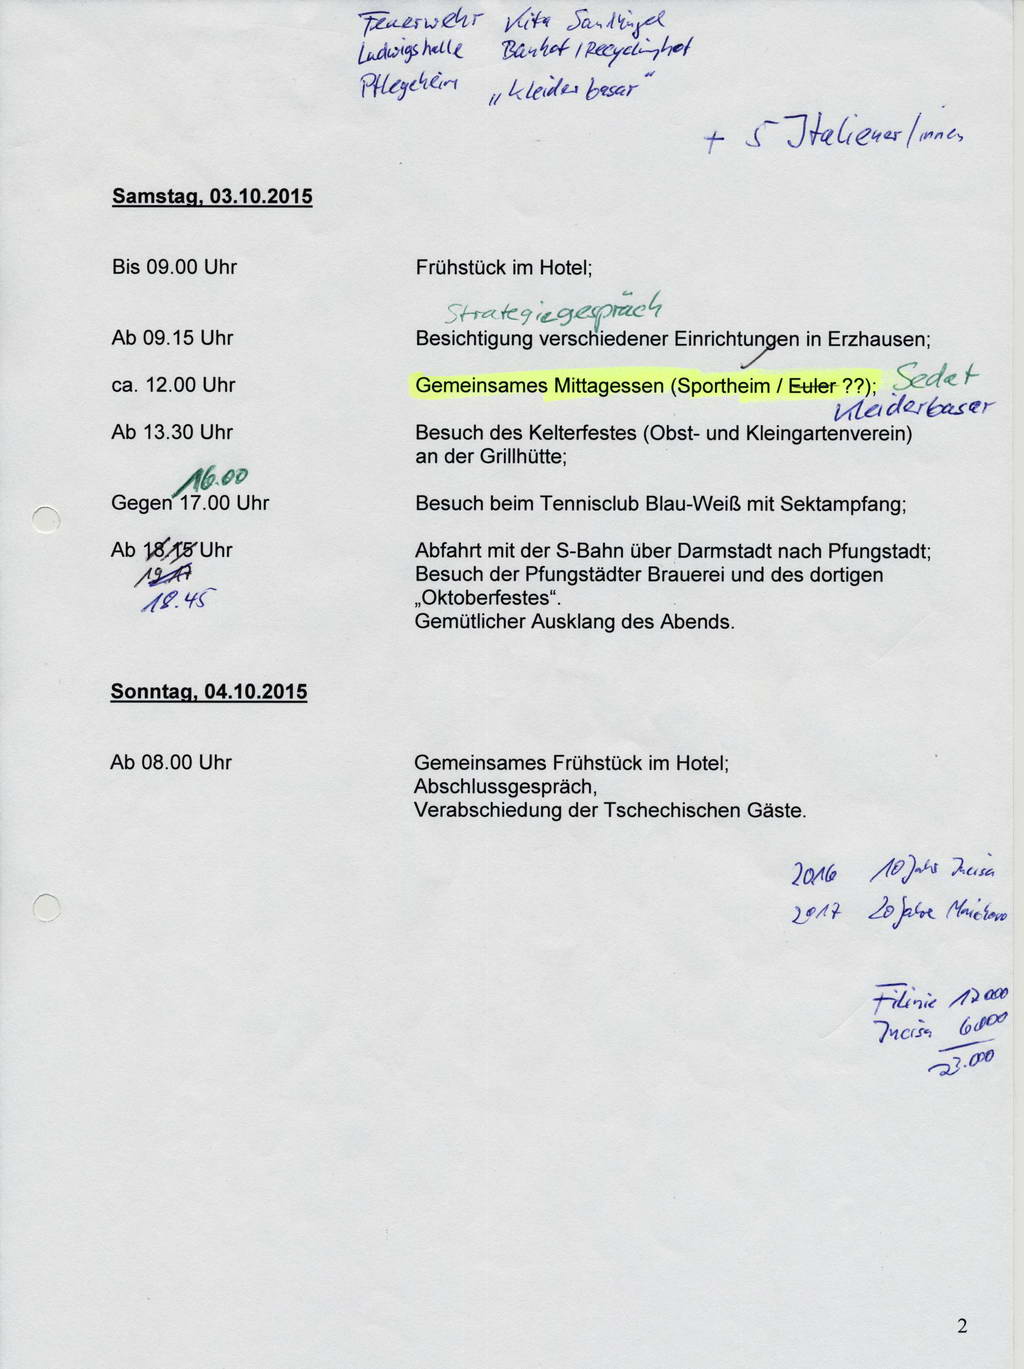 Feuerwehr Kita Sandhügel
Ludwigshalle Bauhof / Recyclinghof
Pflegeheim „Kleiderbasar"
+ 5 Italiener/innen
Samstag, 03.10.2015
Bis 09.00 Uhr Frühstück im Hotel;
Strategiegespräch
Ab 09.15 Uhr Besichtigung verschiedener Einrichtungen in Erzhausen;
ca. 12.00 Uhr Gemeinsames Mittagessen (Sportheim / Euler ??); Sedat
Kleiderbasar
Ab 13.30 Uhr Besuch des Kelterfestes (Obst- und Kleingartenverein)
an der Grillhütte;
16.00
Gegen 17.00 Uhr Besuch beim Tennisclub Blau-Weiß mit Sektampfang;
Ab 18.15 Uhr Abfahrt mit der S-Bahn über Darmstadt nach Pfungstadt;
19.17 Besuch der Pfungstädter Brauerei und des dortigen
18.45 „Oktoberfestes“.
Gemütlicher Ausklang des Abends.
Sonntag, 04.10.2015
Ab 08.00 Uhr Gemeinsames Frühstück im Hotel;
Abschlussgespräch,
Verabschiedung der Tschechischen Gäste.
2016 10 Jahre Incisa
2017 20 Jahre
Incisa 6.000
23.000
2